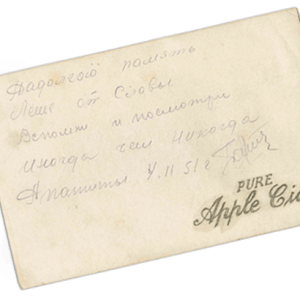 На долгою память
Леше от Славы
Вспомни и посмотри
иногда чем никогда
Апатиты 4.11 51 г
PURE
Apple Cid